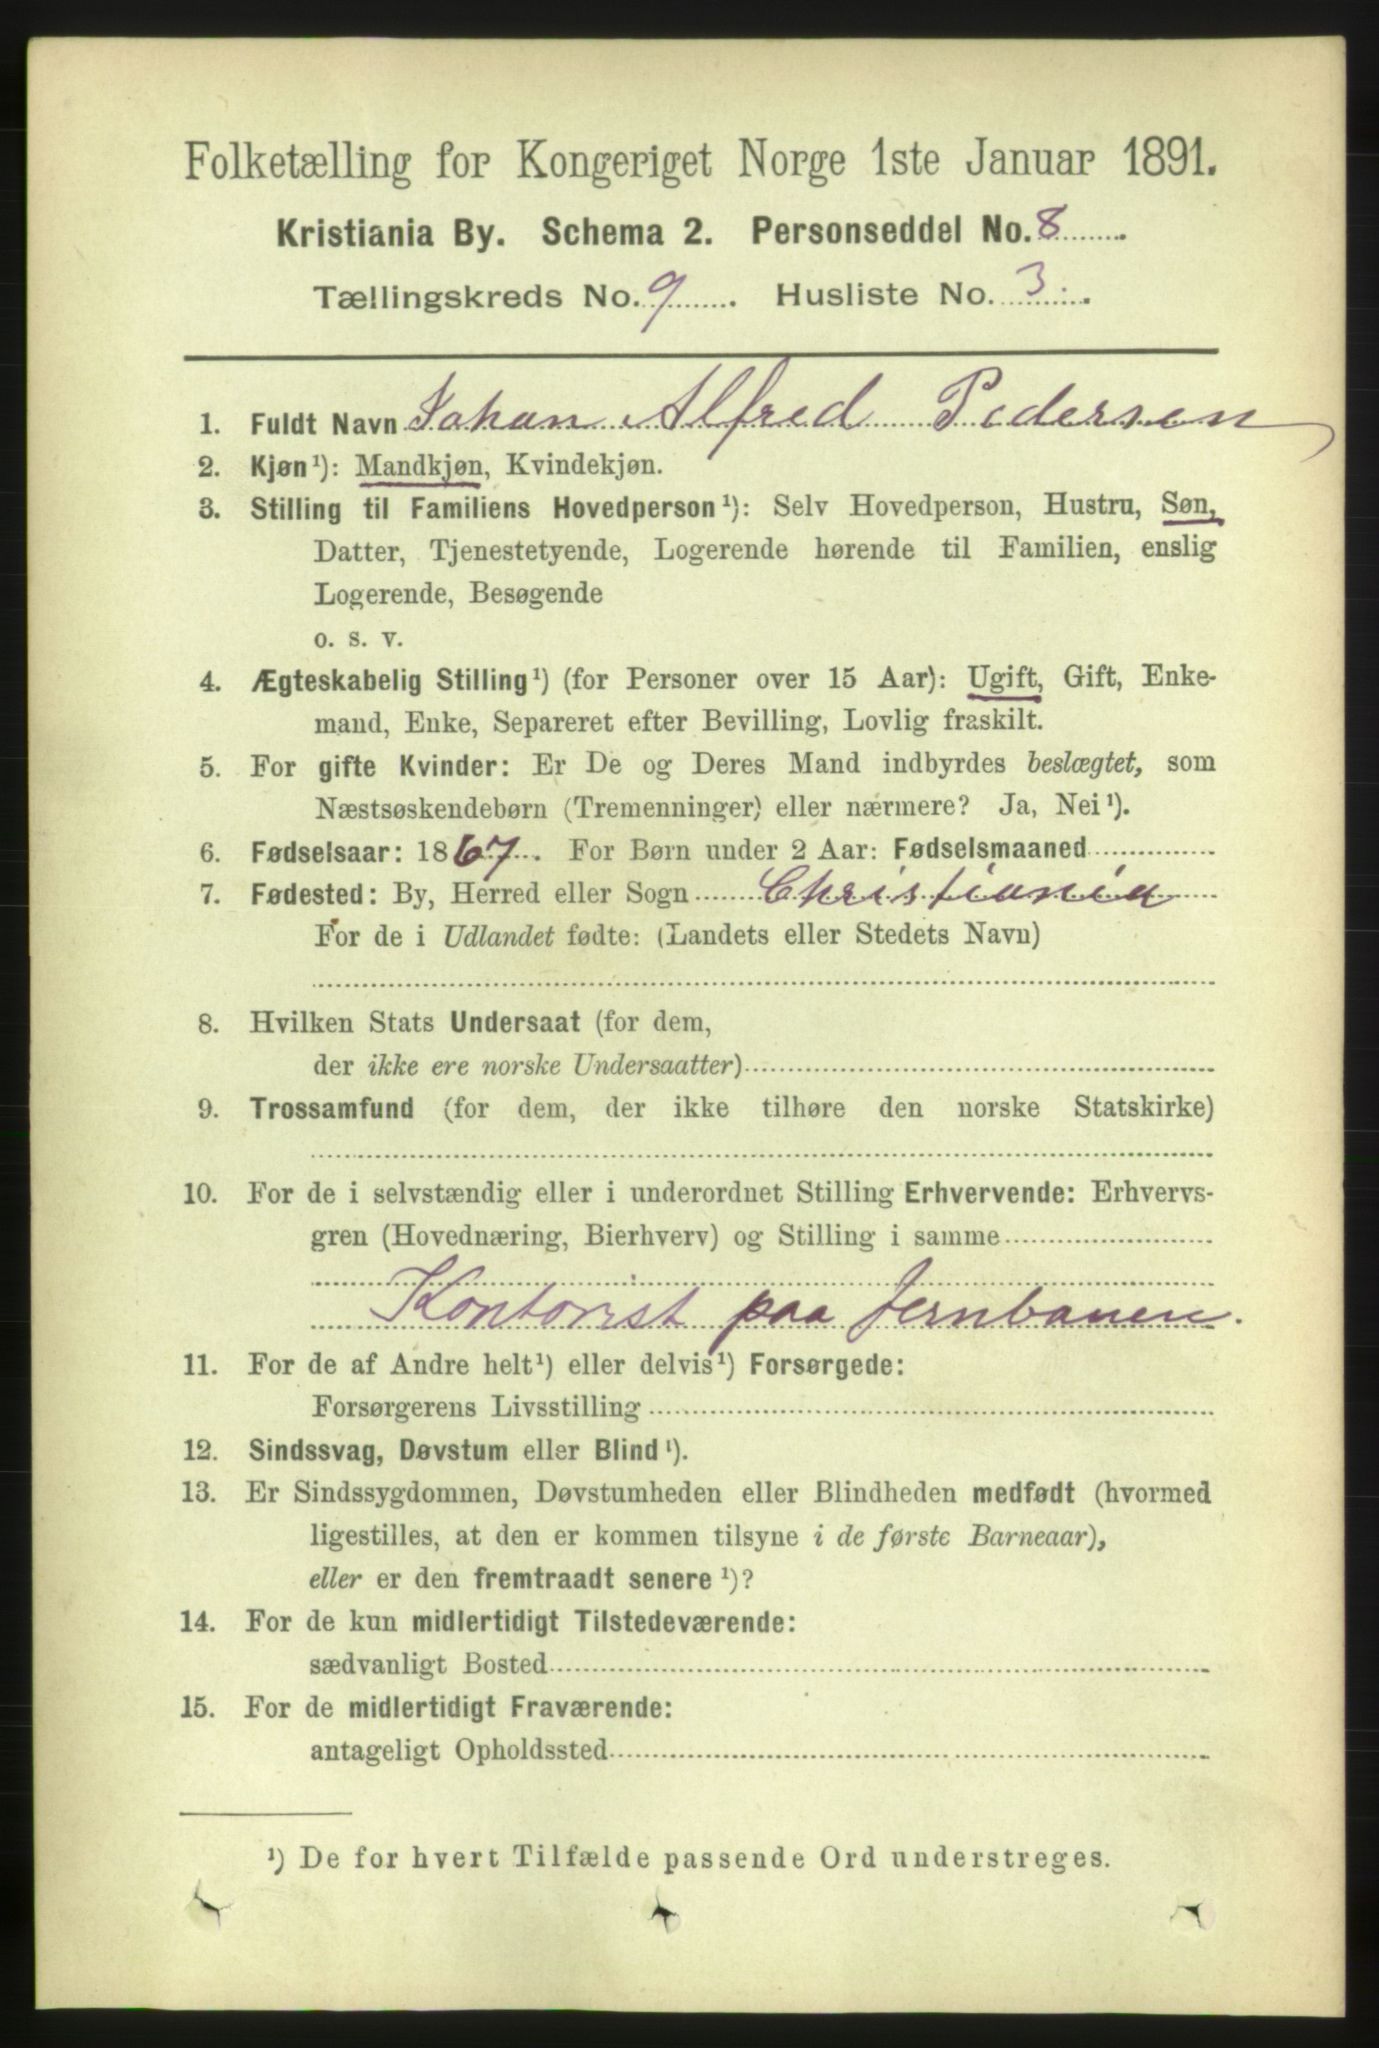 Folketælling for Kongeriget Norge 1ste Januar 1891.
Kristiania By. Schema 2. Personseddel No. 8
Tællingskreds No. 9. Husliste No. 3.
1. Fuldt Navn Johan Alfred Pedersen
2. Kjøn¹): Mandkjøn, Kvindekjøn.
3. Stilling til Familiens Hovedperson¹): Selv Hovedperson, Hustru, Søn,
Datter, Tjenestetyende, Logerende hørende til Familien, enslig
Logerende, Besøgende
o. s. v.
4. Ægteskabelig Stilling¹) (for Personer over 15 Aar): Ugift, Gift, Enke-
mand, Enke, Separeret efter Bevilling, Lovlig fraskilt.
5. For gifte Kvinder: Er De og Deres Mand indbyrdes beslægtet, som
Næstsøskendebørn (Tremenninger) eller nærmere? Ja, Nei¹).
6. Fødselsaar: 1867. For Børn under 2 Aar: Fødselsmaaned
7. Fødested: By, Herred eller Sogn Christiania
For de i Udlandet fødte: (Landets eller Stedets Navn)
8. Hvilken Stats Undersaat (for dem,
der ikke ere norske Undersaatter)
9. Trossamfund (for dem, der ikke tilhøre den norske Statskirke)
10. For de i selvstændig eller i underordnet Stilling Erhvervende: Erhvervs-
gren (Hovednæring, Bierhverv) og Stilling i samme
Kontorist paa Jernbanen.
11. For de af Andre helt¹) eller delvis¹) Forsørgede:
Forsørgerens Livsstilling
12. Sindssvag, Døvstum eller Blind¹).
13. Er Sindssygdommen, Døvstumheden eller Blindheden medfødt (hvormed
ligestilles, at den er kommen tilsyne i de første Barneaar),
eller er den fremtraadt senere¹)?
14. For de kun midlertidigt Tilstedeværende:
sædvanligt Bosted
15. For de midlertidigt Fraværende:
antageligt Opholdssted
¹) De for hvert Tilfælde passende Ord understreges.